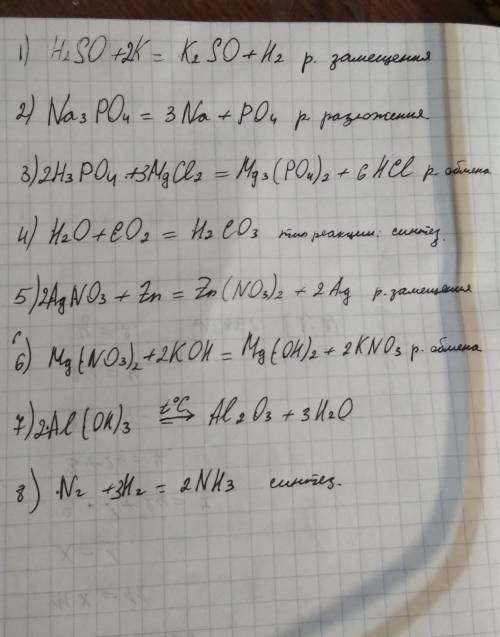 1) H₂SO+2K = K₂SO+H₂ р. замещения
2) Na₃PO₄ = 3Na + PO₄ р разложения
3) 2H₃PO₄ + 3MgCl₂ = Mg₃(PO₄)₂ + 6HCl р. обмена
4) H₂O + CO₂ = H₂CO₃ тип реакции: синтез.
5) 2AgNO₃ + Zn = Zn(NO₃)₂ + 2Ag р. замещения
6) Mg(NO₃)₂ + 2KOH = Mg(OH)₂ + 2KNO₃ р. обмена
7) 2Al(OH)₃ t°C ⟶ Al₂O₃ + 3H₂O
8) N₂ + 3H₂ = 2NH₃ синтез.